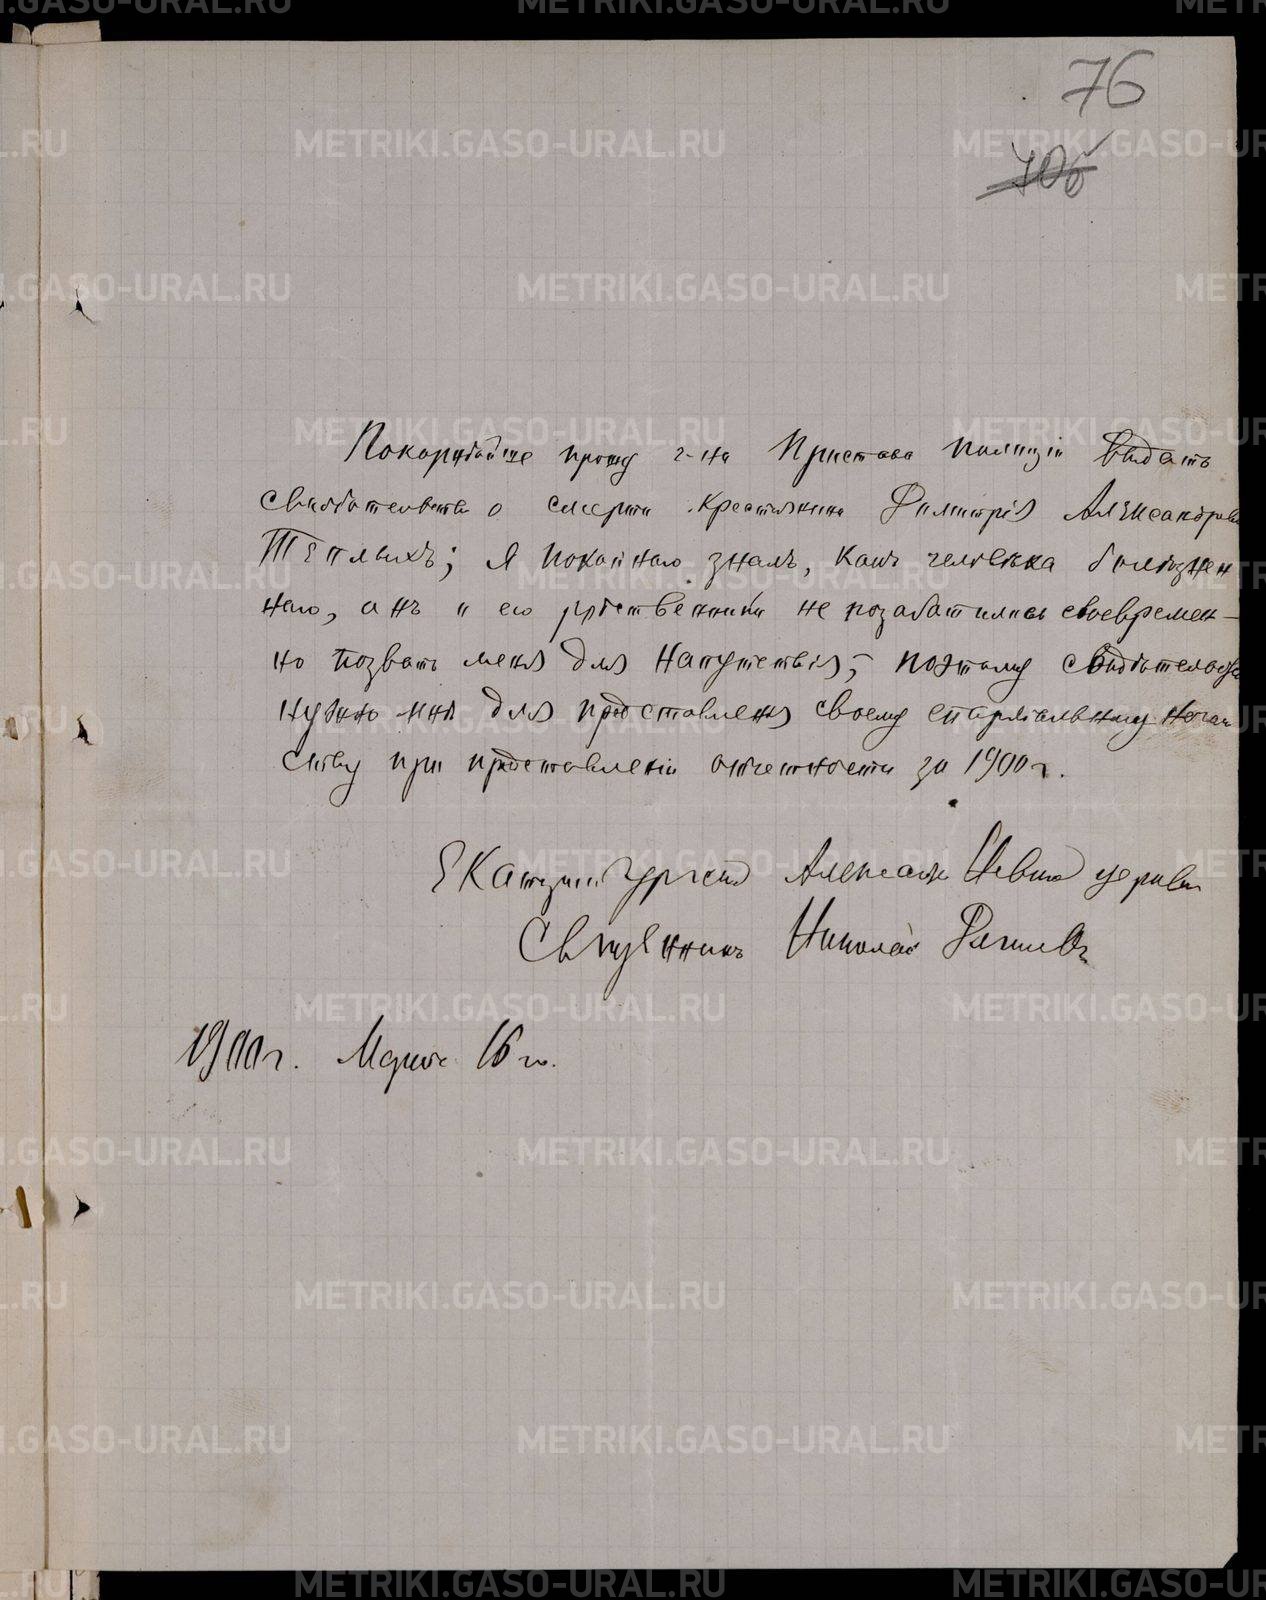 76
106
Покорнѣйше прошу г-на Пристава полиціи выдать
свидѣтельство о смерти крестьянина Димитрія Александрова
Теплыхъ; я покойнаго зналъ, какъ человѣка болѣзнен
наго, онъ и его родственники не позаботились своевремен-
но позвать меня для напутствія, поэтому свидѣтельство
нужно мнѣ для представленія своему епархіальному началь
ству при представленіи отчетности за 1900 г.
Екатеринбургской Александро Невской церкви
Священникъ Николай
1900 г. Марта 16 го.